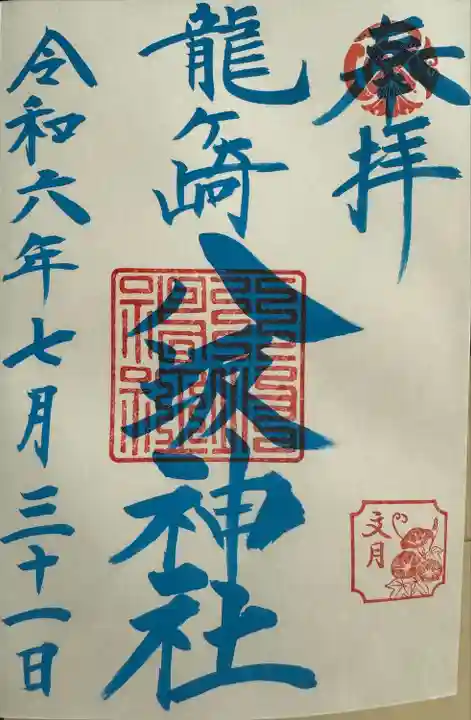 奉拝
龍ヶ崎
八坂神社
令和六年七月三十一日
文月